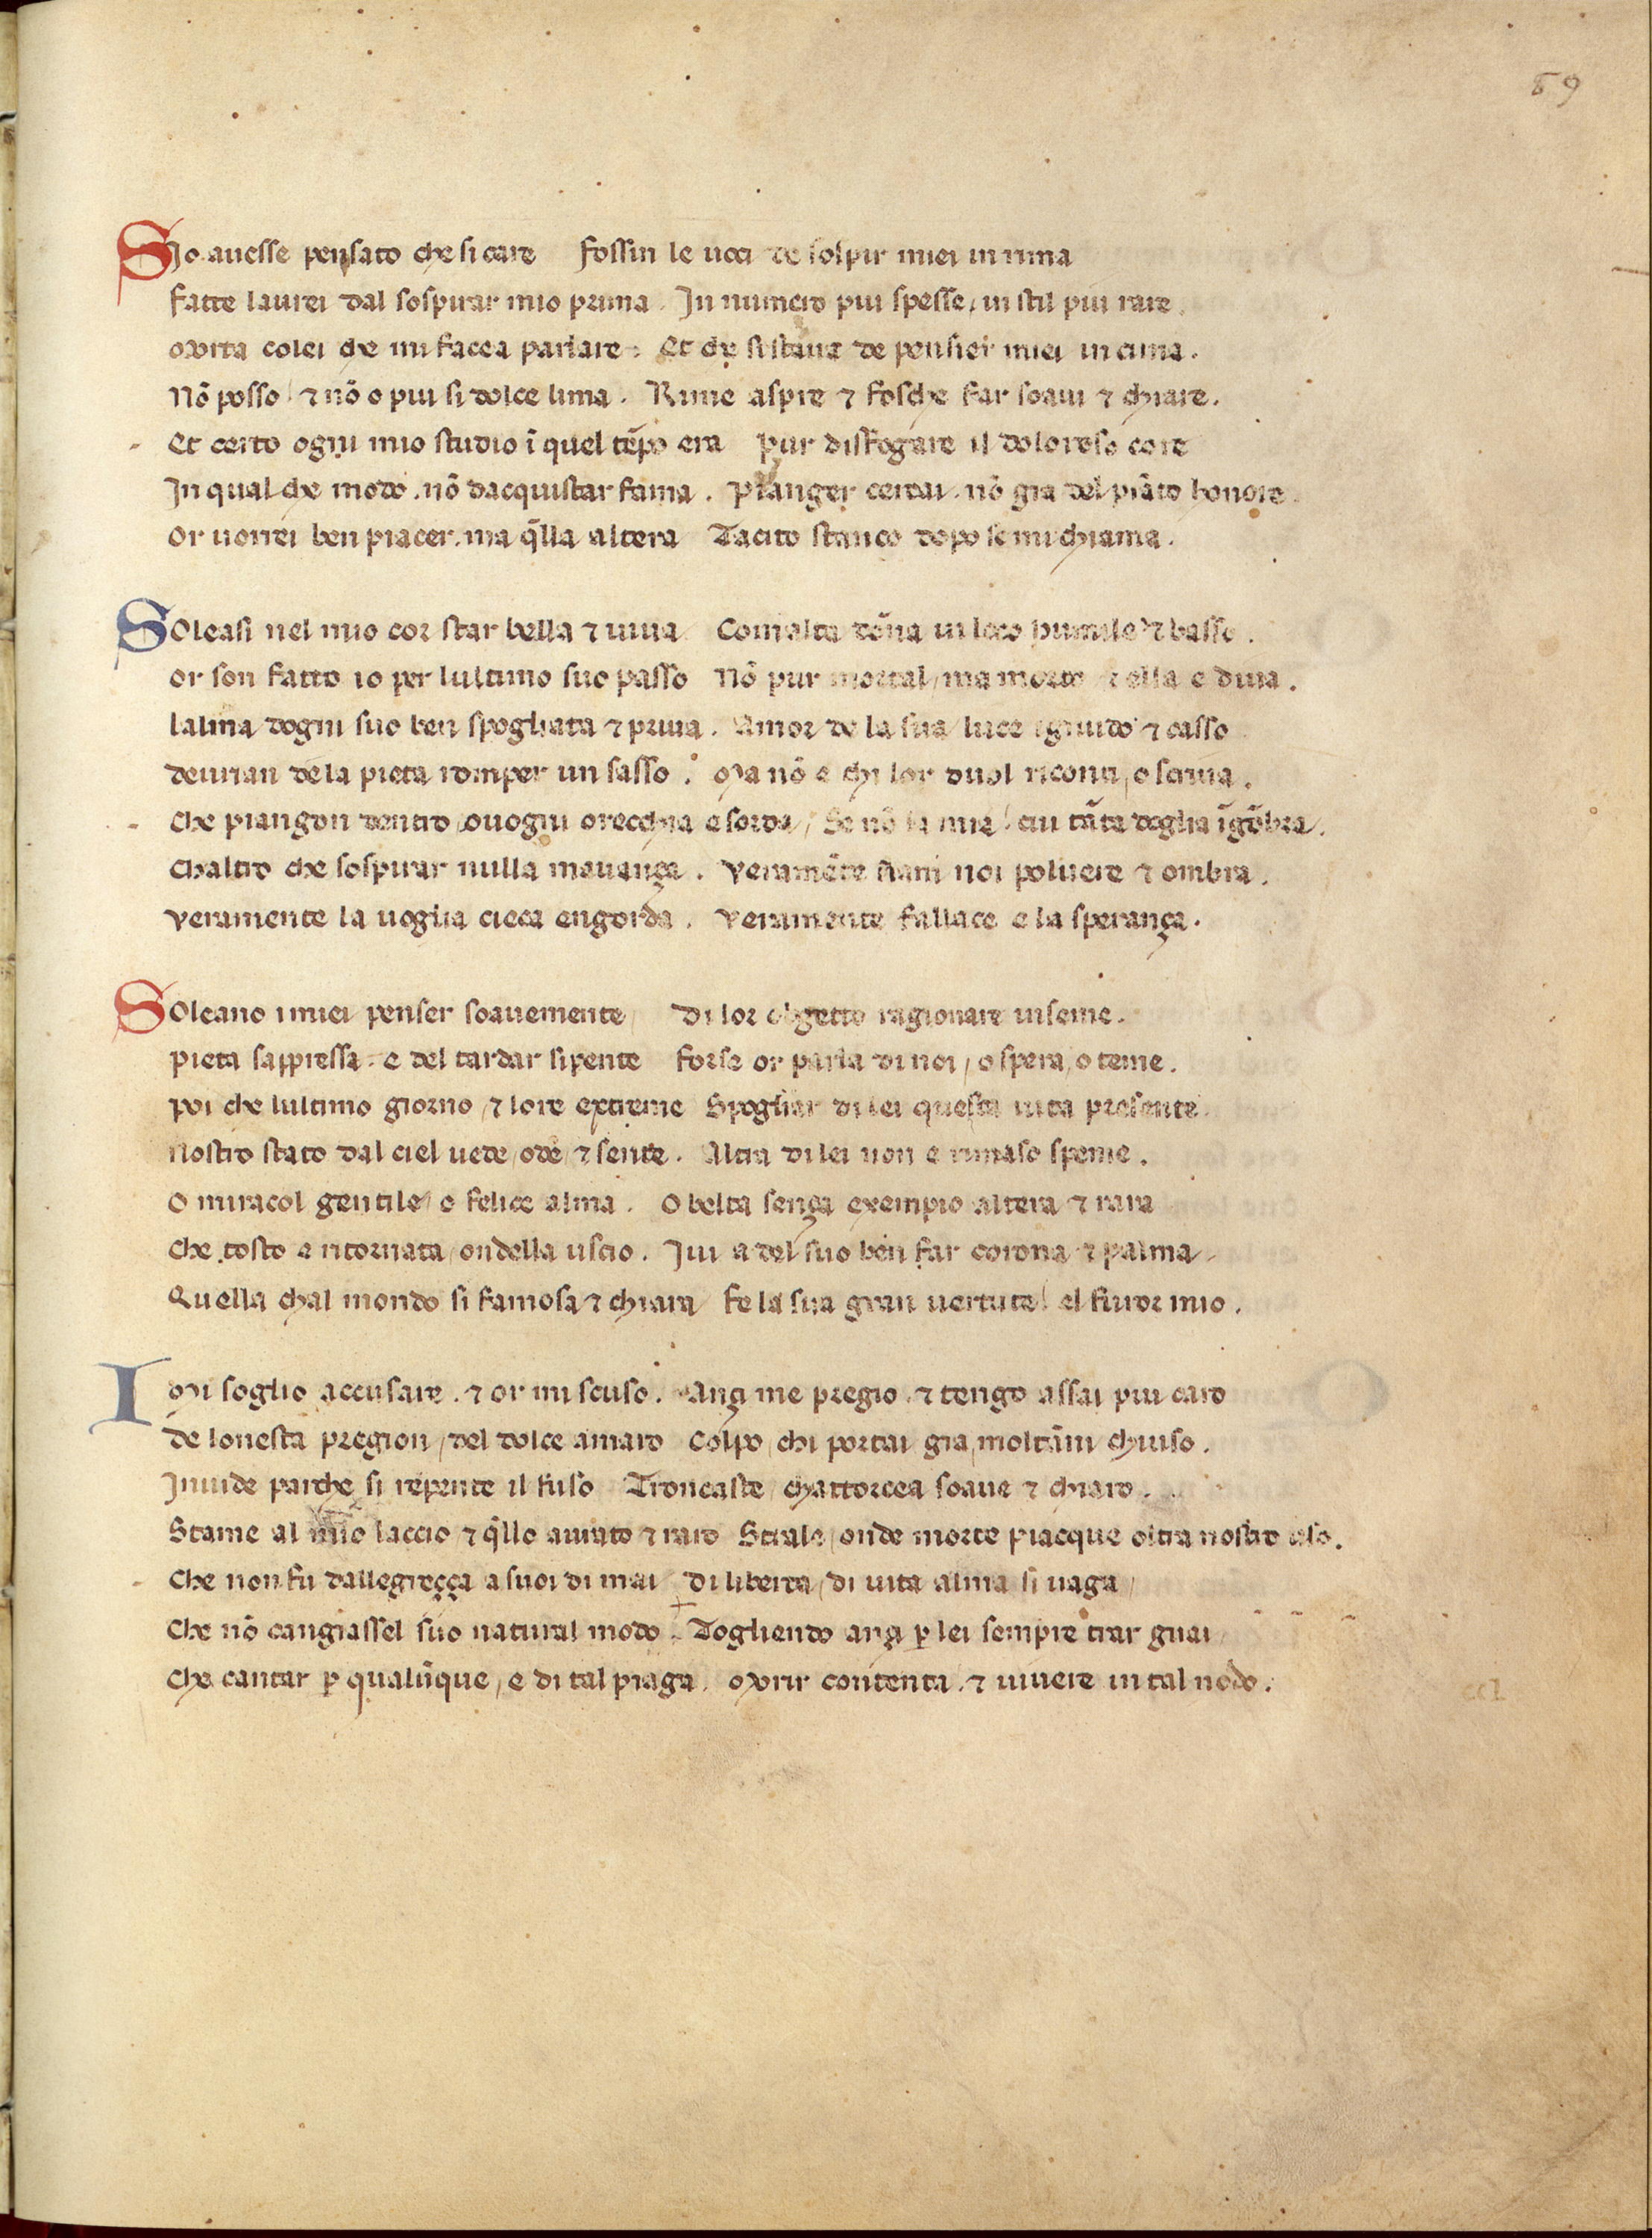 59
SJo auesse pensato che si care fossin le uoci de sospir miei in rima
Fatte laurei dal sospirar mio prima. In numero piu spesse, in stil piu rare.
Morta colei che mi facea parlare. Et che si staua de pensier miei in cima.
Nõ posso / ⁊ nõ o piu si dolce lima. Rime aspre ⁊ fosche far soaui ⁊ chiare.
Et certo ogni mio studio ĩ quel tẽpo era pur disfogare il doloroso core
In qual che modo. nõ dacquistar fama. Pianger cercai. nõ gia del piãto honore.
Or uorrei ben piacer. ma q̃lla altera Tacito stanco dopo se mi chiama.
SOleasi nel mio cor star bella ⁊ uiua Comalta dõna in loco humile ⁊ basso.
Or son fatto io per lultimo suo passo Nõ pur mortal / ma morto / ⁊ ella e diua.
Lalma dogni suo ben spogliata ⁊ priua. Amor de la sua luce ignudo ⁊ casso
deurian de la pieta romper un sasso. Ma nõ e chi lor duol riconti, o scriua.
Che piangon dentro, ouogni orecchia e sorda / Se nõ la mia / cui tãta doglia ĩgõbra.
Chaltro che sospirar nulla mauança. Veramẽte siam noi poluere ⁊ ombra.
Veramente la uoglia cieca engorda. Veramente fallace e la sperança.
SOleano i miei penser soauemente Di lor obgetto ragionare inseme.
pieta sappressa. e del tardar si pente forse or parla di noi / o spera, o teme.
Poi che lultimo giorno / ⁊ lore extreme Spogliar di lei questa uita presente.
Nostro stato dal ciel uede / ode / ⁊ sente. Altra di lei non e rimaso speme.
O miracol gentile / o felice alma. O belta sença exempio altera ⁊ rara
Che tosto e ritornata / ondella uscio. Iui a del suo ben far corona ⁊ palma
Quella chal mondo si famosa ⁊ chiara / fe la sua gran uertute / el furor mio.
I Mi soglio accusare. ⁊ or mi scuso. Ançi me pregio. ⁊ tengo assai piu caro
De lonesta pregion / del dolce amaro Colpo / chi portai gia moltãni chiuso.
Inuide parche si repente il fuso Troncaste / chattorcea soaue ⁊ chiaro.
Stame al mio laccio ⁊ q̃llo aurato ⁊ raro Strale / onde morte piacque oltra nostro uso.
Che non fu dallegreçça a suoi di mai di liberta / di uita alma si uaga /
Che nõ cangiassel suo natural modo. Togliendo ançi ꝑ lei sempre trar guai
Che cantar ꝑ qualũque / e di tal piaga. Morir contenta. ⁊ uiuere in tal nodo.
ccl